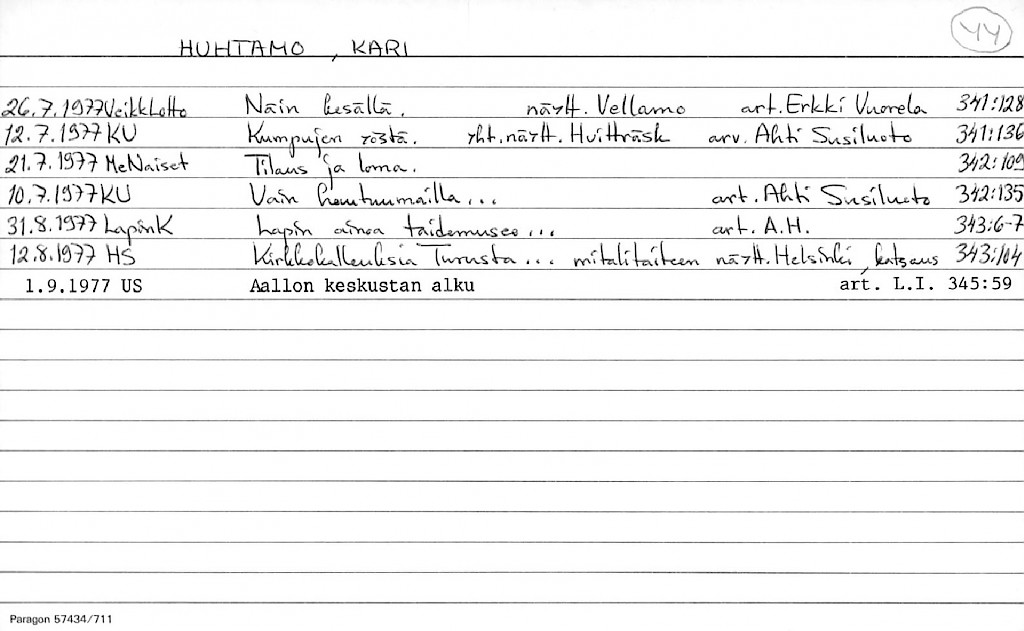 44
HUHTAMO, KARI
26.7.1977 VeikkLotto Näin kesällä. näytt. Vellamo art. Erkki Vuorela 341:128
12.7.1977 KU Kumpujen yöstä. yht.näytt. Hvitträsk arv. Ahti Susiluoto 341:136
21.7.1977 MeNaiset Tilaus ja loma. 342:109
10.7.1977 KU Vain hontuumailla... art. Ahti Susiluoto 342:135
31.8.1977 LapinK Lapin ainoa taidemuseo... art. A.H. 343:6-7
12.8.1977 HS Kirkkokalleuksia Turusta... mitalitaiteen näytt. Helsinki, katsaus 343:104
1.9.1977 US Aallon keskustan alku art. L.I. 345:59
Paragon 57434/711